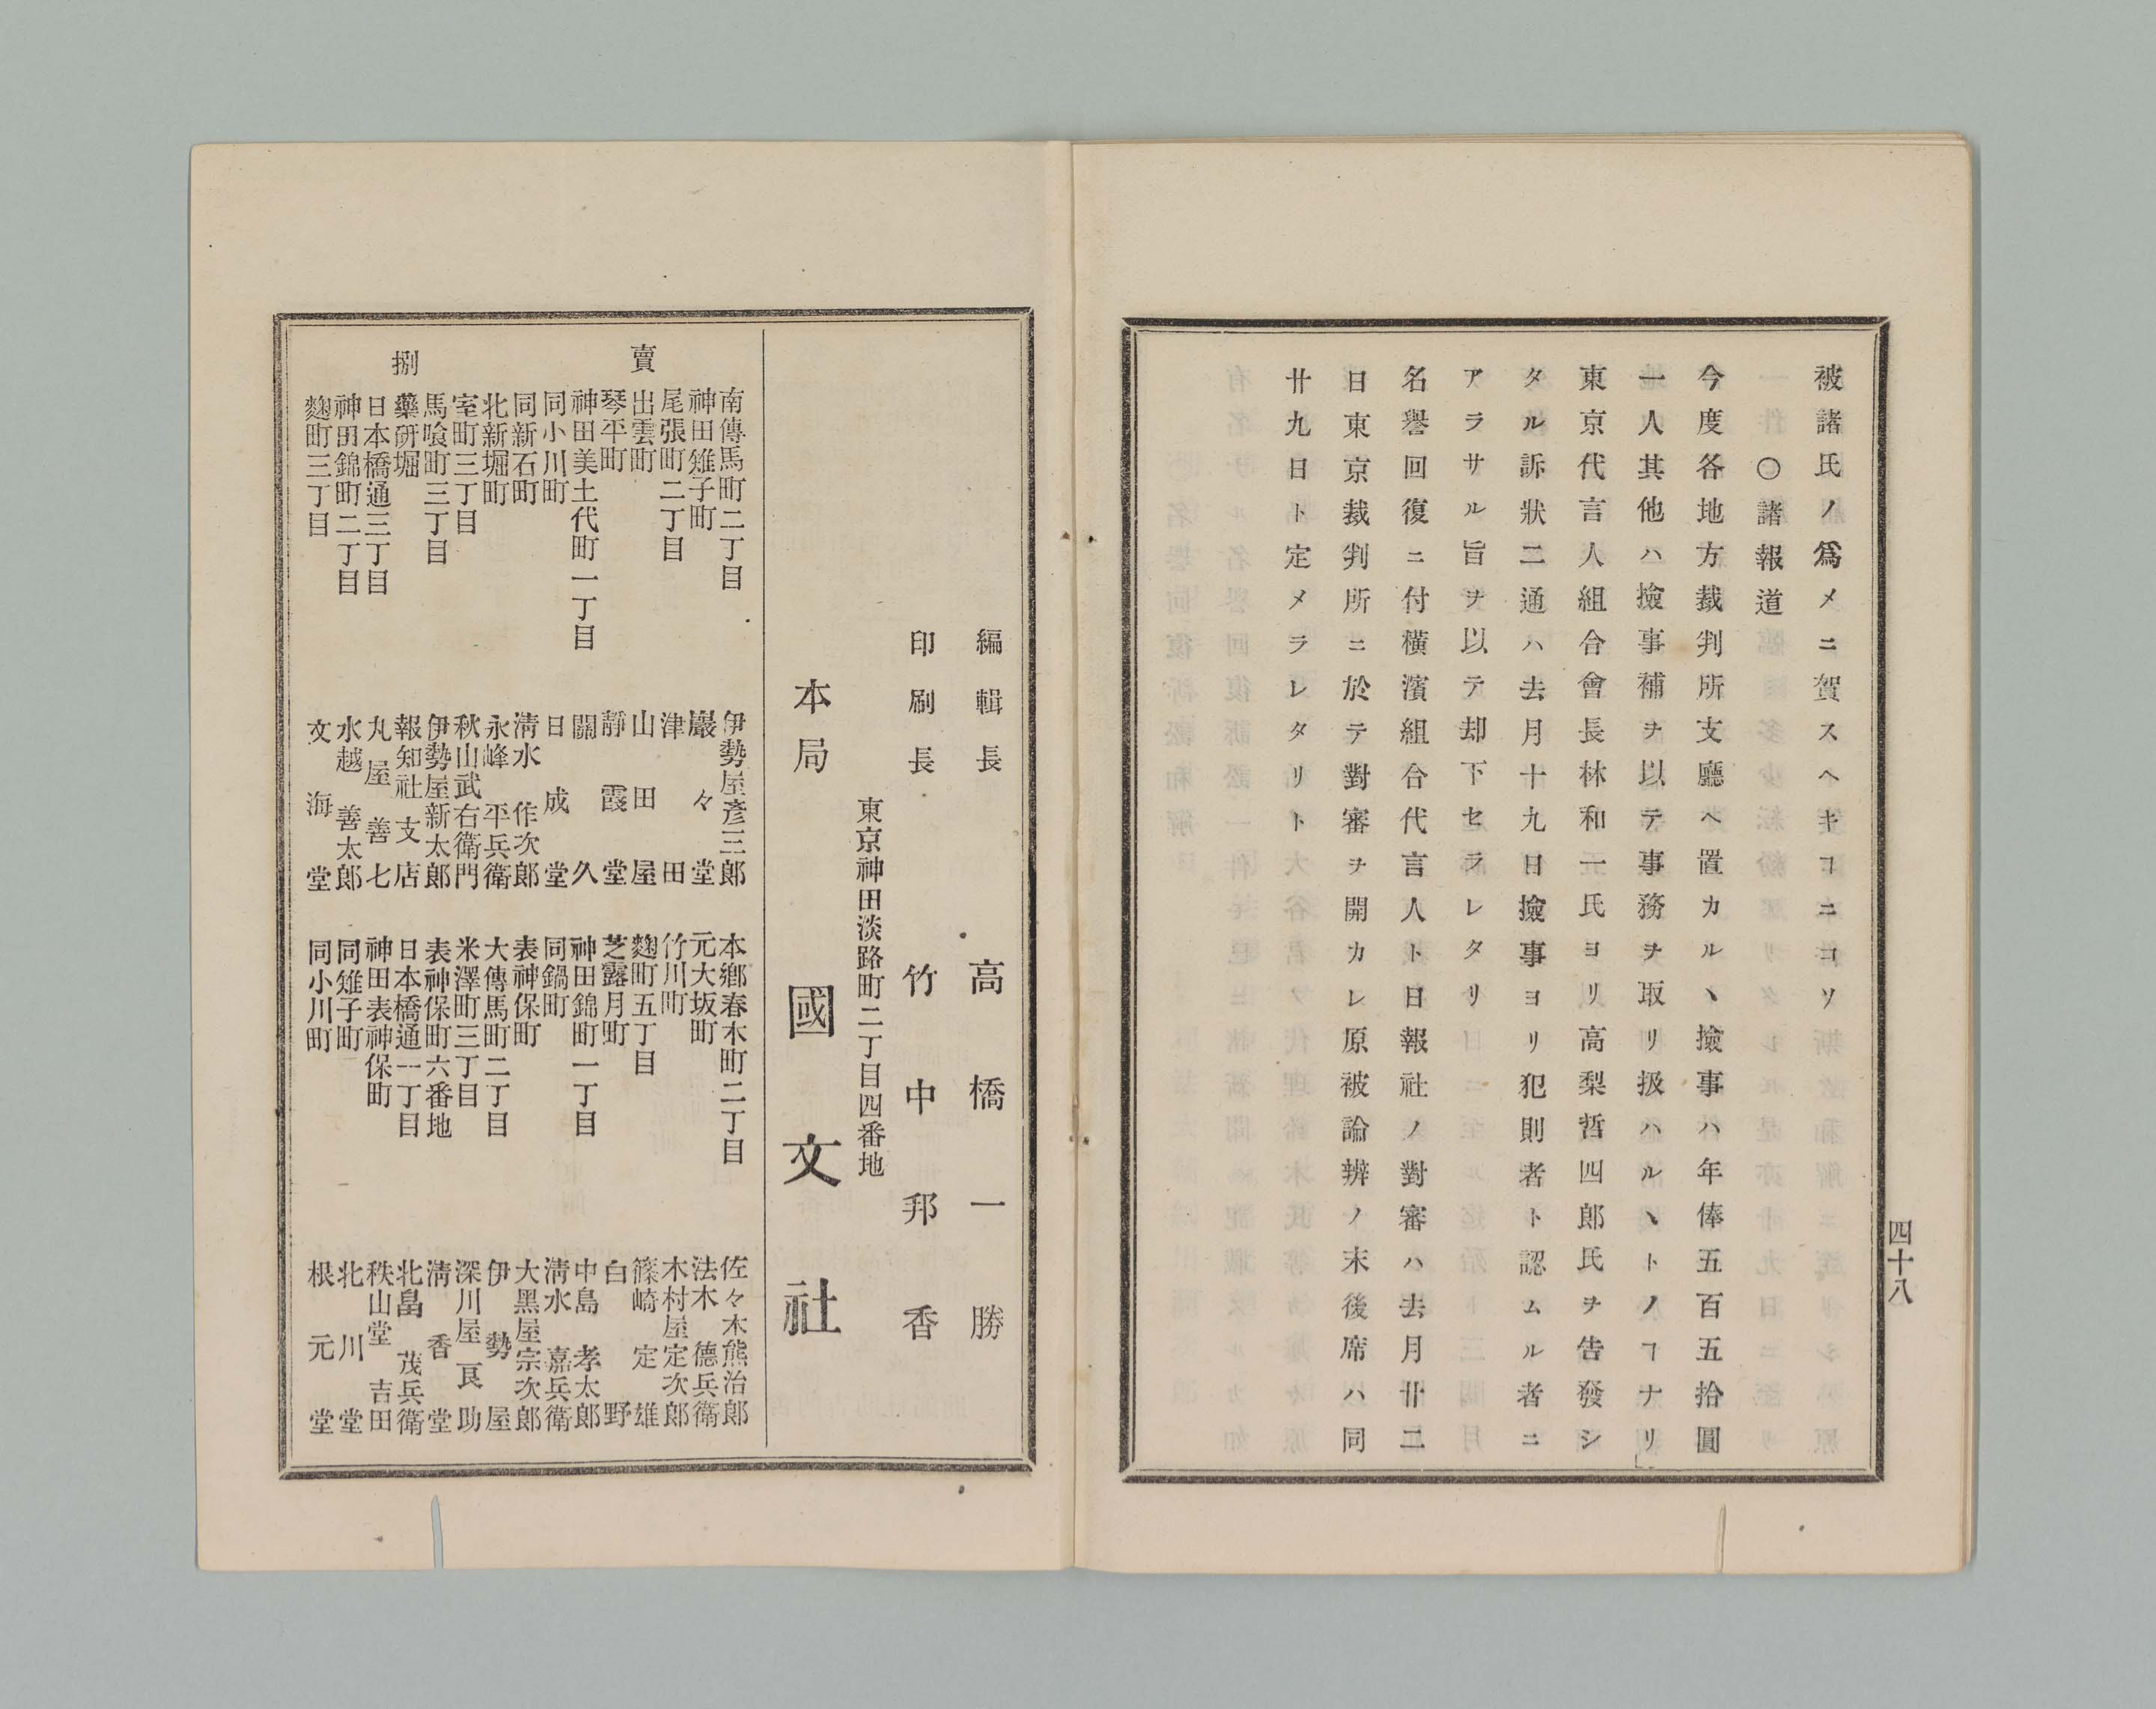 被諸氏ノ爲メニ賀スヘキヿニコソ
〇諸報道
今度各地方裁判所支廳ヘ置カルヽ撿事ハ年俸五百五拾圓
一人其他ハ撿事補ヲ以テ事務ヲ取リ扱ハルヽトノヿナリ」
東京代言人組合會長林和一氏ヨリ高梨哲四郎氏ヲ告發シ
タル訴狀二通ハ去月十九日撿事ヨリ犯則者ト認ムル者ニ
アラサル旨ヲ以テ却下セラレタリ
名譽回復ニ付橫濱組合代言人ト日報社ノ對審ハ去月廿二
日東京裁判所ニ於テ對審ヲ開カレ原被論辨ノ末後席ハ同
廿九日ト定メラレタリト
四十八
編輯長 高橋一勝
印刷長 竹中邦香
東京神田淡路町二丁目四番地
本局 國文社
賣捌
南傳馬町二丁目 伊勢屋彥三郎
神田雉子町 巖々堂
尾張町二丁目 津田
出雲町 山田屋
琴平町 靜霞堂
神田美土代町一丁目 關久
同小川町 日成堂
同新石町 淸水作次郎
北新堀町 永峰平兵衛
室町三丁目 秋山武右衛門
馬喰町三丁目 伊勢屋新太郎
藥硏堀 報知社支店
日本橋通三丁目 丸屋善七
神田錦町二丁目 水越善太郎
麴町三丁目 文海堂
本鄕春木町二丁目 佐々木熊治郎
元大坂町 法木德兵衛
竹川町 木村屋定次郎
麴町五丁目 篠崎定雄
芝露月町 白野
神田錦町一丁目 中島孝太郎
同鍋町 淸水嘉兵衛
表神保町 大黑屋宗次郎
大傳馬町二丁目 伊勢屋
米澤町三丁目 深川屋良助
表神保町六番地 淸香堂
日本橋通一丁目 北畠茂兵衛
神田表神保町 秩山堂吉田
同雉子町 北川堂
同小川町 根元堂